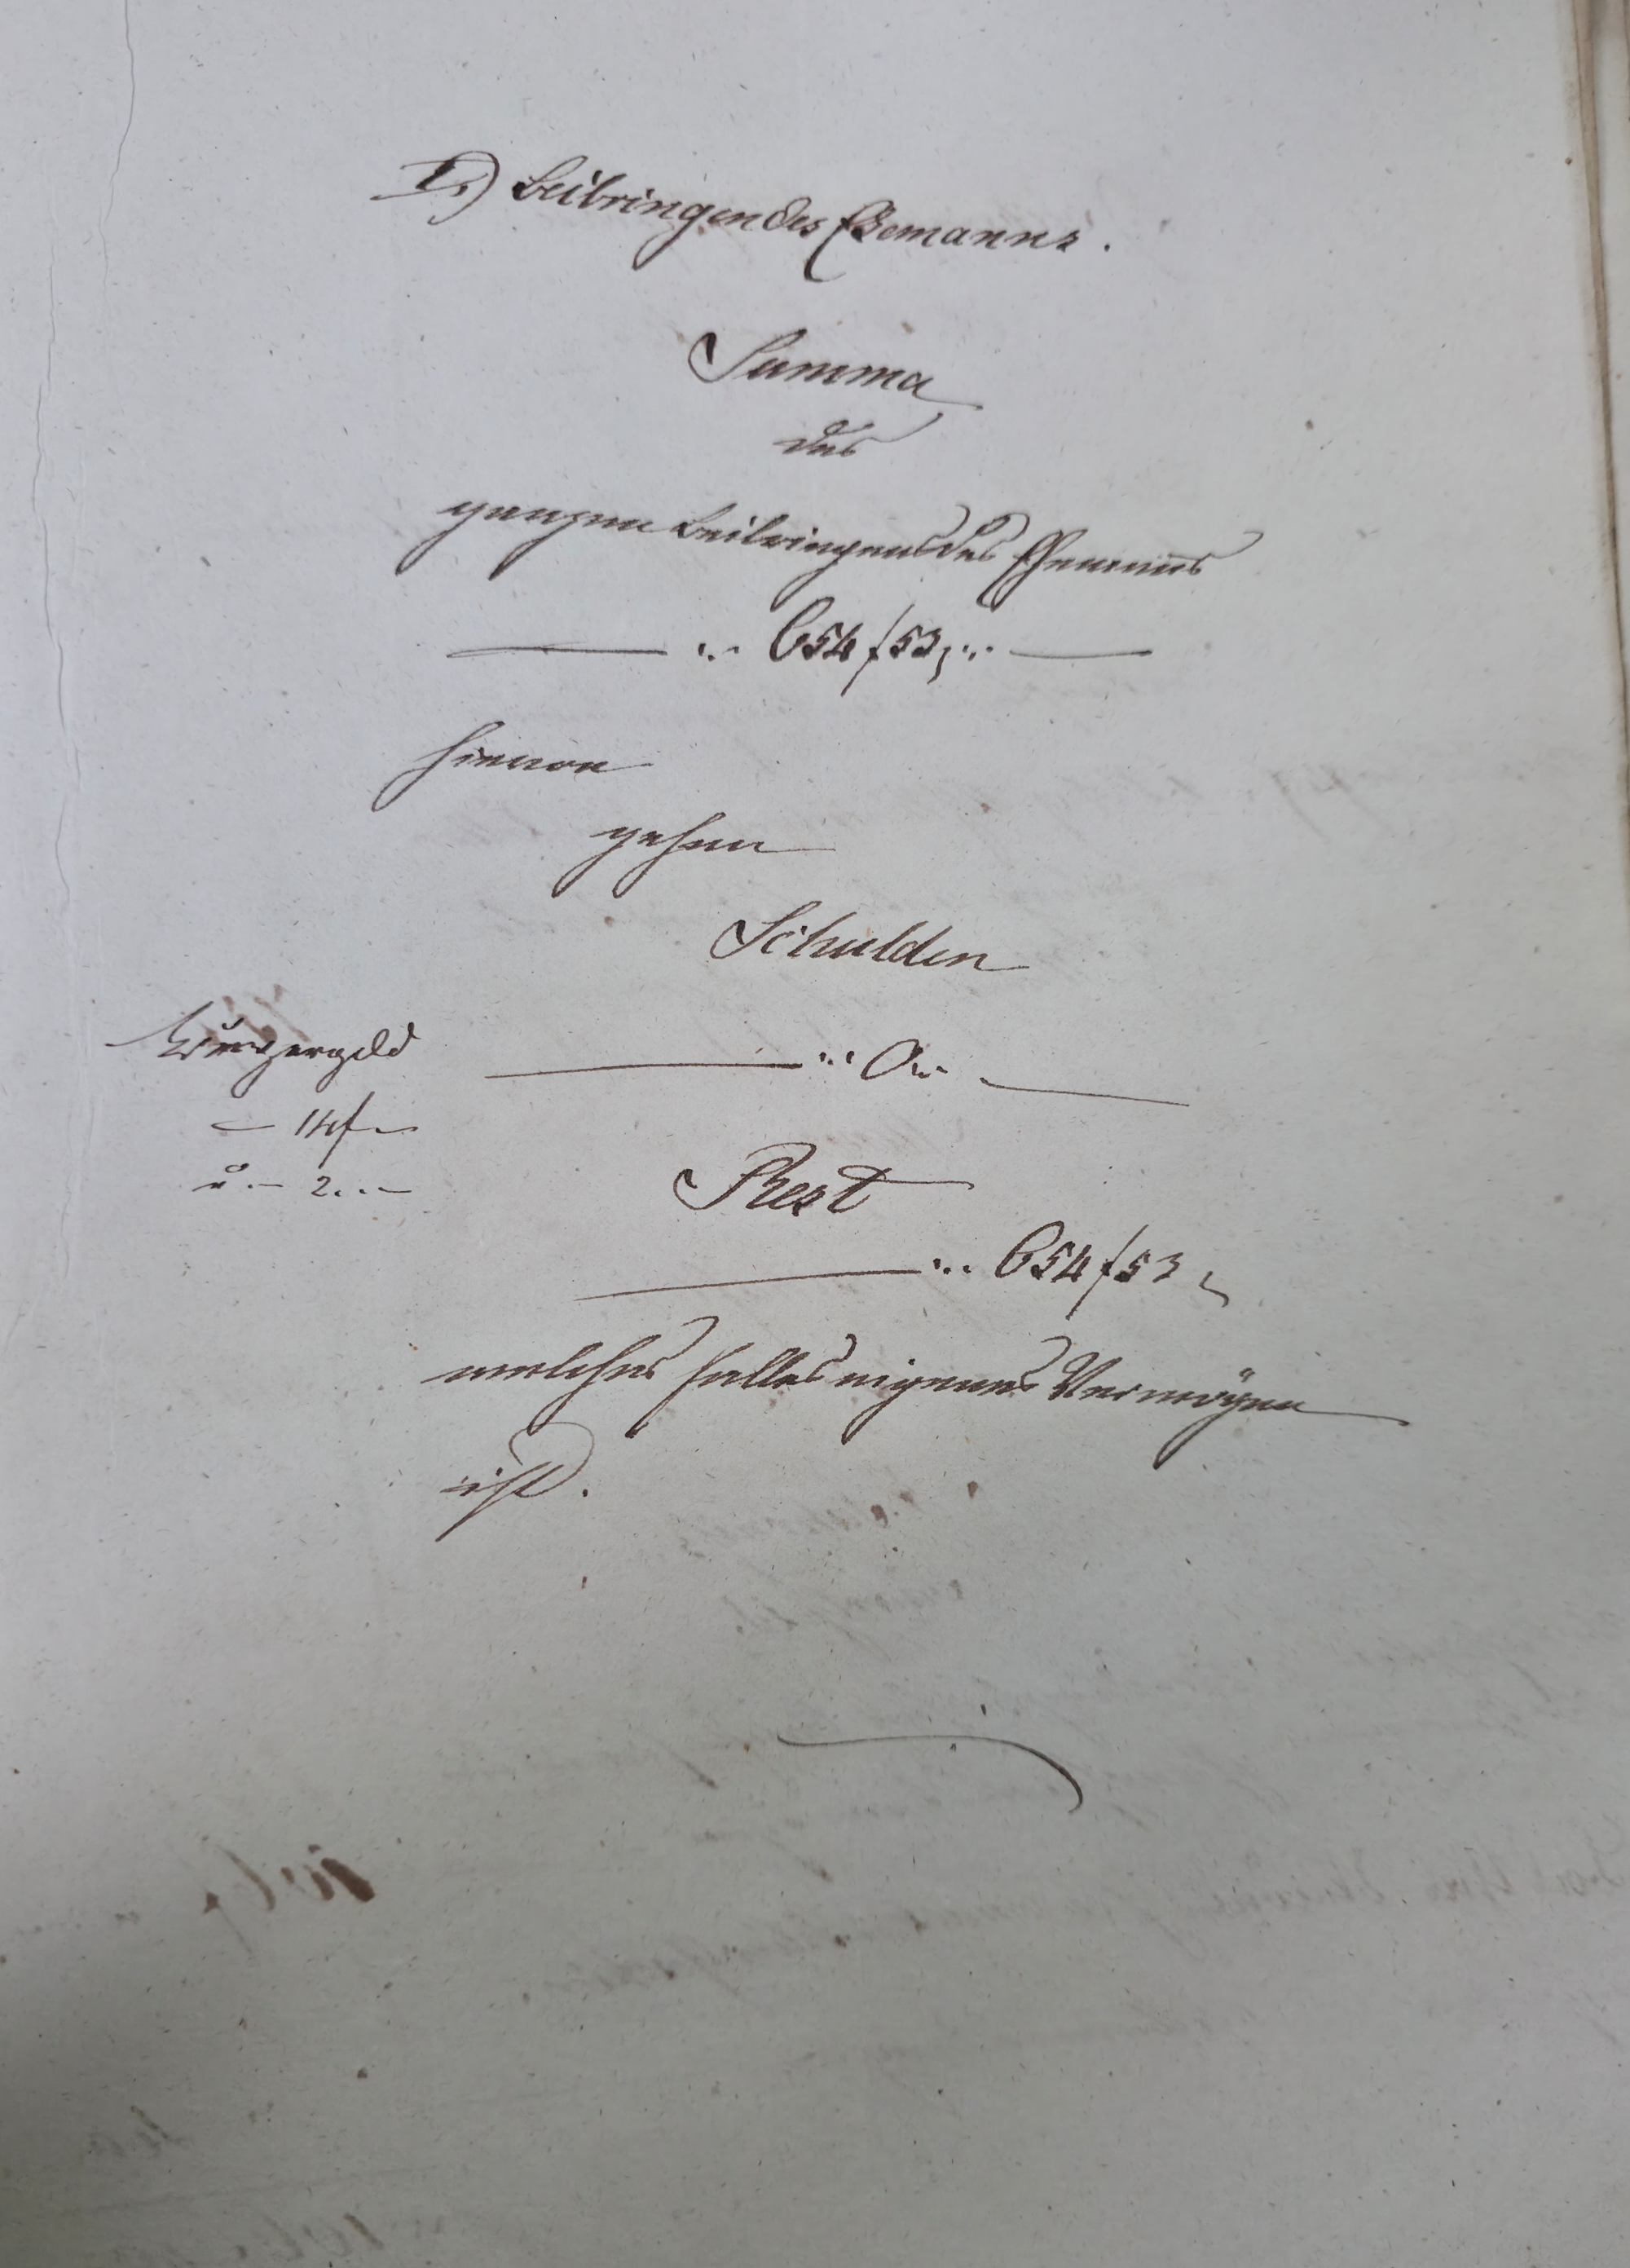 I.) Beibringen des Ehemanns.
Summa
des
ganzen Beibringens des Ehemanns
654 f 53
hievon
gehen
Schulden
0
Bürgergeld
14 f
2
Rest
654 f 53
welches alles eigenes Vermögen
ist.